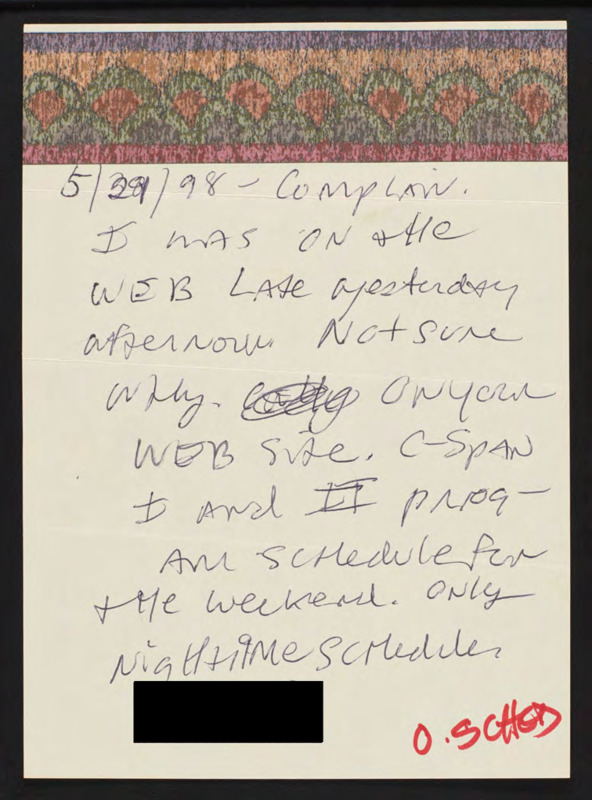 5/29/98 - Complain.
I was on the
WEB Late yesterday
afternoon. Not sure
why. On your
WEB site. C-SPAN
I and II prog-
am schedule for
the weekend. only
Nighttime schedule.
O. SCHED